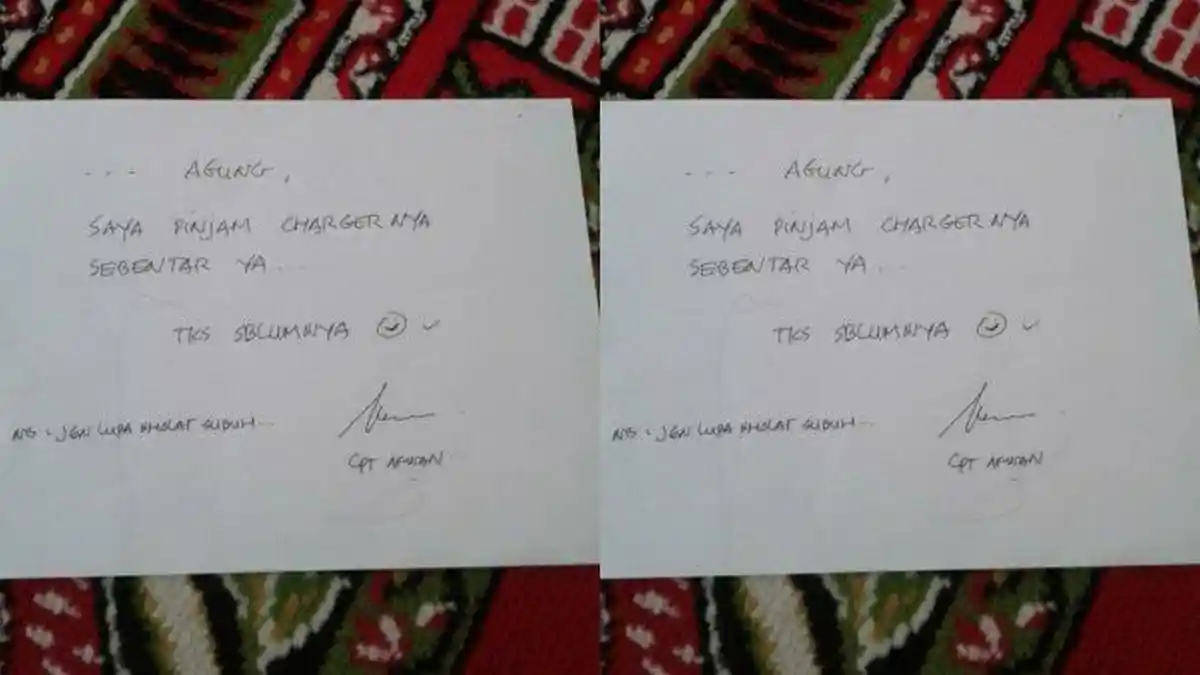 --- AGUNG,
SAYA PINJAM CHARGER NYA
SEBENTAR YA...
TKS SBLUMNYA
NB : JGN LUPA SHOLAT SUBUH...
CPT
--- AGUNG,
SAYA PINJAM CHARGER NYA
SEBENTAR YA...
TKS SBLUMNYA
NB : JGN LUPA SHOLAT SUBUH...
CPT